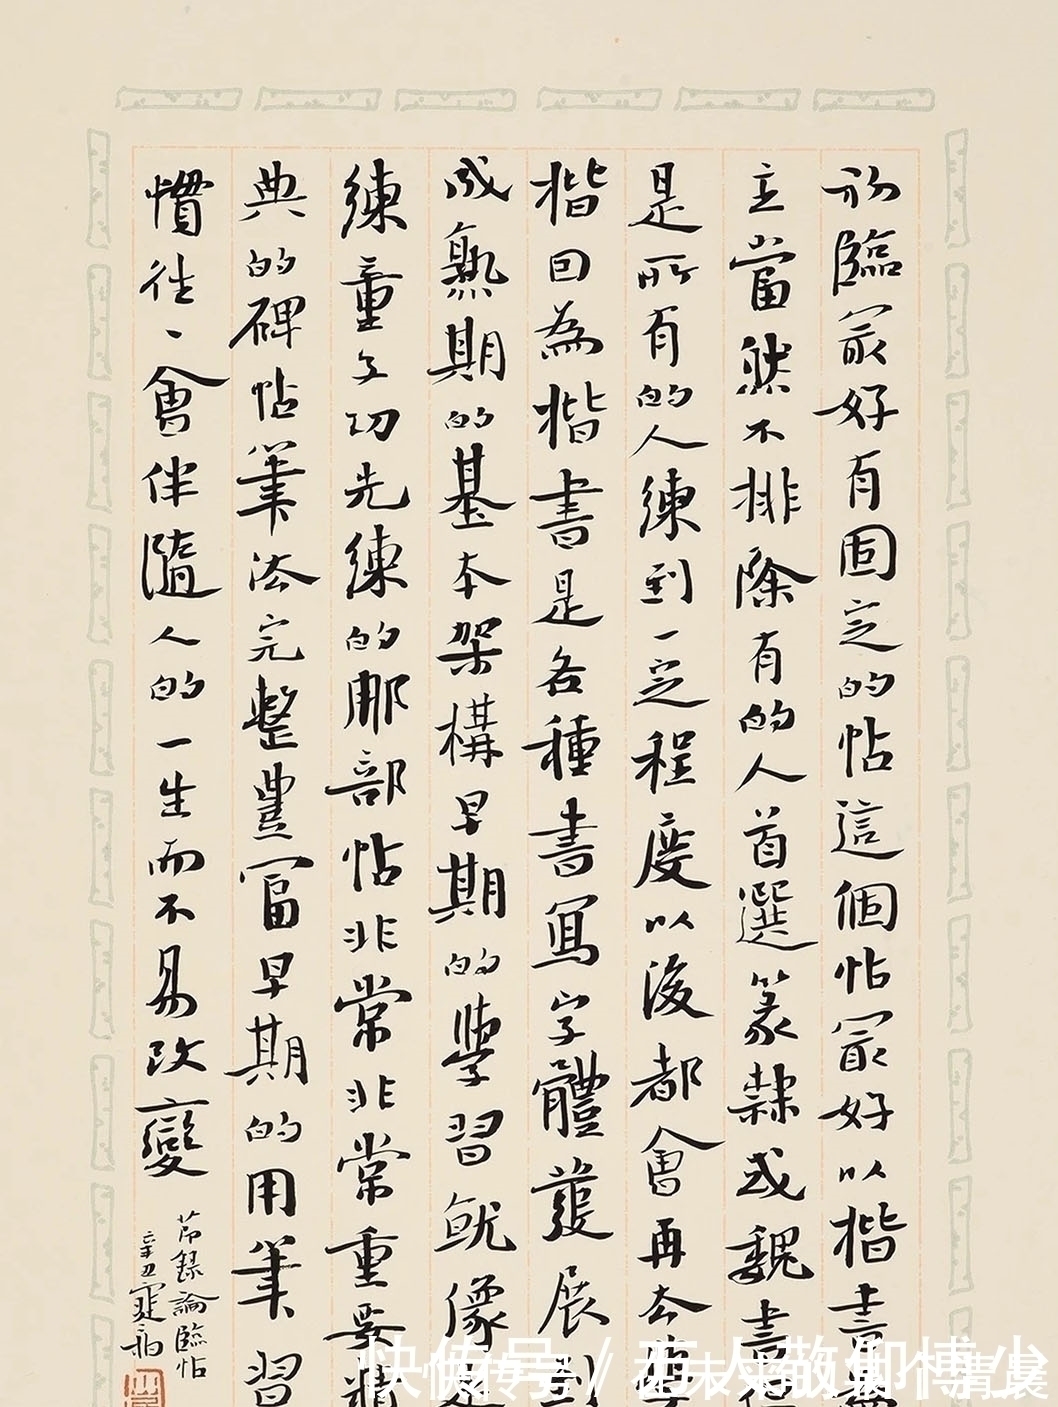 初臨冣好有固定的帖這個帖冣好以楷書為
主當然不排除有的人首選篆隸或魏書但
是所有的人練到一定程度以後都會再去學
楷回為楷書是各種書寫字體發展到
成熟期的基本架構早期的學習就像是
練童子功先練的那部帖非常非常重要精
典的碑帖筆法完整豐富早期的用筆習
慣往丶會伴隨人的一生而不易改變
節錄論臨帖
辛丑
快传号/